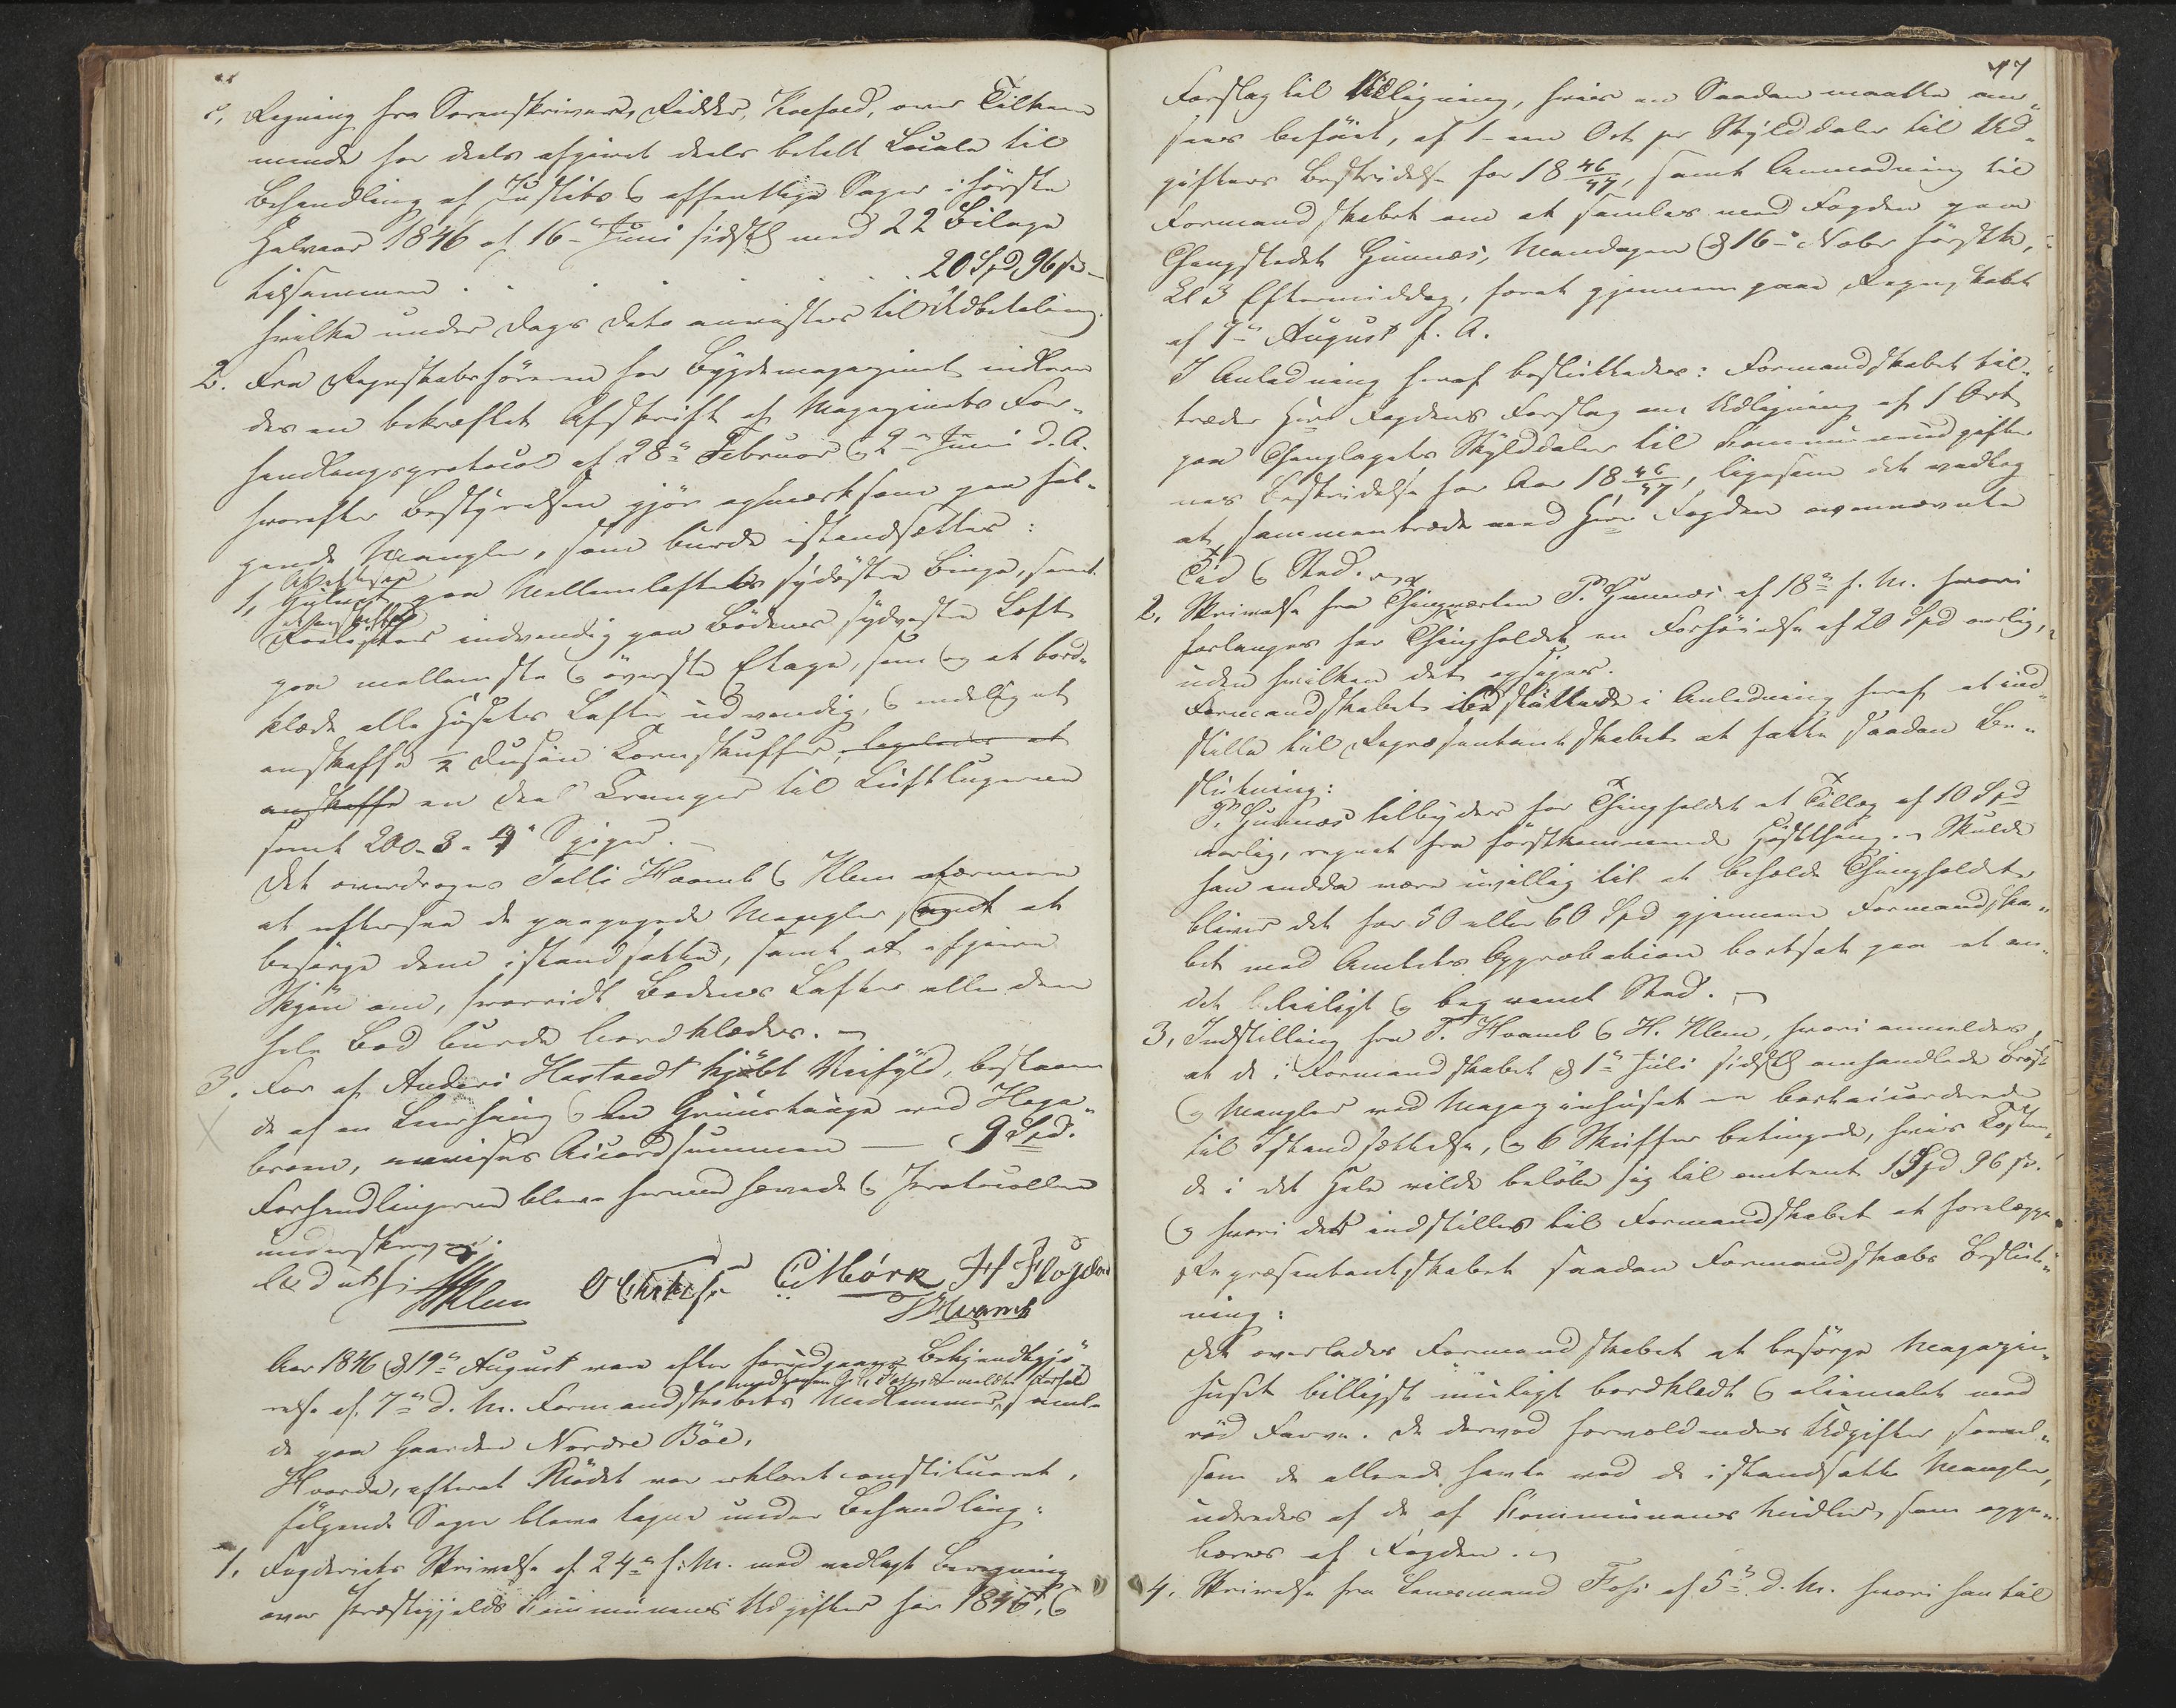 c, Regning fra Sorenskriver, Ridder, Koefoed, over Tilkom-
mende for deels afgivet deels betalt Locale til
Behandling af Justits & offentlige Sager i første
Halvaar 1846 af 16- Juni sidstl. med 22 Bilage
tilsammen . . . . . . 20 Spd 96 s -
hvilke under Dags Dato anvistes til Udbetaling.
2. Fra Regnskabsføreren for Bygdemagazinet indkom
des en bekræftet Afskrift af Magazinets For-
handlingsprotocol af 28de Februar & 2den Juni d. A.
hvorefter Bestyrelsen gjør opmærksom paa føl-
gende Mangler, som burde istandsættes:
1, Gulvet paa Mellemloftets sydøstre Binge, samt
at anskaffe
indvendig paa Bodens sydvestre Loft
paa mellemste & øverste Etage, som og at bord-
klæde alle Husets Lofter udvendig, & endelig at
anskaffe ½ Dusin Kornskuffer, ligeledes at
anskaffe en Deel Kramper til Luftlugerne
samt 200 3 a 4" Spiger.
Det overdroges Tolli Hvamb & Klem nærmere
at eftersee de paapegede Mangler, samt at
besørge dem istandsatte, samt at afgive
Skjøn om, hvorvidt Bodens Lofter eller den
hele Bod burde bordklædes.
3. For af Anders Harstadt kjøbt Veifyld, bestaaen
de af en Leerhaug & en Gruushauge ved Hega-
broen, anvises Accordsummen — 9 Spd.
Forhandlingerne bleve hermed hævede & Protocollen
underskreven.
Ut supra
HKlem O Christ C: Mørk H Fløjstad
THvamb
Aar 1846 d 19de August vare efter forudgaaen Bekjendtgjø-
relse af 7de d. M. Formandskabets Medlemmer, samle
de paa Gaarden Nordre Bøe,
Hvorda, efterat Mødet var erklæret constitueret,
følgende Sager bleve tagne under Behandling:
1. Fogderiets Skrivelse af 24de f. M. med vedlagt Beregning
over Præstegjelds Kommunens Udgifter for 1846, &
47
Forslag til Udligning, hvis en Saadan maatte an-
sees beføiet, af 1- een Ort pr Skylddaler til Ud-
gifters Bestridelse for 18 46/47, samt Anmodning til
Formandskabet om at samles med Fogden paa
Thingstedet Guunæs, Mandagen d 16de Novbr førstk,
Kl 3 Eftermiddag, forat gjennemgaae Regnskabet
af 7de August f. A.
I Anledning heraf besluttedes: Formandskabet til-
træder Herr Fogdens Forslag om Udligning af 1 Ort
paa Thinglagets Skylddaler til Kommuneudgifter
nes Bestridelse for Aar 18 46/47, ligesom det vedtog
at sammentræde med Herr Fogden ovennævnte
Tid & Sted.
2. Skrivelse fra Thingverten P. Guunæs af 18de f. M. hvori
forlanges for Thingholdet en Forhøielse af 20 Spd aarlig,
uden hvilken det opsiges.
Formandskabet besluttede i Anledning heraf at ind-
stille til Repræsentantskabet at fatte saadan Be-
slutning:
P. Guunæs tilbydes for Thingholdet et Tillæg af 10 Spd
aarlig, regnet fra førstkommende Høstthing. Skulde
han endda være uvillig til at beholde Thingholdet
bliver det for 50 eller 60 Spd gjennem Formandska-
bet med Amtets Approbation bortsat paa et an-
det beleiligt & beqvemt Sted.
3, Indstilling fra T. Hvamb & H. Klem, hvori anmeldes,
at de i Formandskabet d 1ste Juli sidstl omhandlede Brøst
& Mangler ved Magazinhuset er bortaccorderede
til Istandsættelse, & 6 Skuffer betingede, hvis Kosten-
de i det Hele vilde beløbe sig til omtrent 1 Spd 96 s.
& hvori det indstilles til Formandskabet at forelægge
Repræsentantskabet saadan Formandskabs Beslut-
ning:
Det overlades Formandskabet at besørge Magazin-
huset billigst muligt bordklædt & oliemalet med
rød Farve. De derved forvoldendes Udgifter saavel-
som de allerede havte ved de istandsatte Mangler,
udredes af de af Kommunens Midler, som oppe-
bæres af Fogden.
4. Skrivelse fra Lensmand Foss af 5te d. M. hvori han til